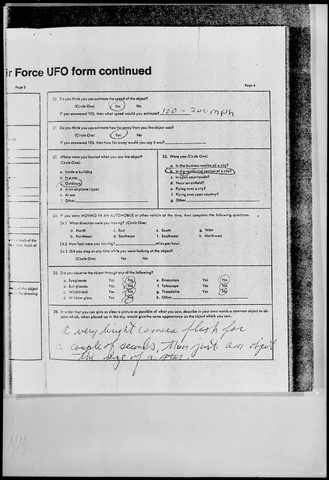 ir Force UFO form continued
Page 3
Page 4
20. Do you think you can estimate the speed of the object?
(Circle One) Yes No
If you answered YES, then what speed would you estimate? 100 - 200 mph
21. Do you think you can estimate how far away from you the object was?
(Circle One) Yes No
If you answered YES, then how far away would you say it was?
22. Where were you located when you saw the object?
(Circle One)
a. Inside a building
b. In a car
c. Outdoors
d. In an airplane (type)
e. At sea
f. Other
23. Were you (Circle One)
a. In the business section of a city?
b. In the residential section of a city?
c. In open countryside?
d. Near an airfield?
e. Flying over a city?
f. Flying over open country?
g. Other
24. If you were MOVING IN AN AUTOMOBILE or other vehicle at the time, then complete the following questions:
24.1 What direction were you moving? (Circle One)
a. North c. East e. South g. West
b. Northeast d. Southeast f. Southwest h. Northwest
24.2 How fast were you moving? miles per hour.
24.3 Did you stop at any time while you were looking at the object?
(Circle One) Yes No
25. Did you observe the object through any of the following?
a. Eyeglasses Yes No e. Binoculars Yes No
b. Sun glasses Yes No f. Telescope Yes No
c. Windshield Yes No g. Theodolite Yes No
d. Window glass Yes No h. Other
26. In order that you can give as clear a picture as possible of what you saw, describe in your own words a common object or ob-
jects which, when placed up in the sky, would give the same appearance as the object which you saw.
a very bright camera flash for
a couple of seconds, then just an object
the size of a star.